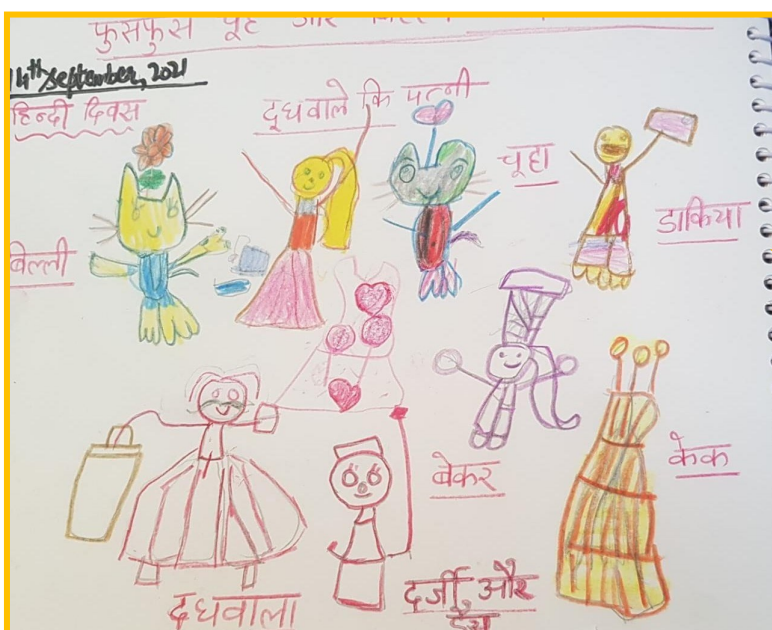 फुसफुस चूहे और
14th September, 2021
हिन्दी दिवस
दूधवाले कि पत्नी
चूहा
डाकिया
बिल्ली
बेकर
केक
दर्जी और
ड्रेस
दूधवाला